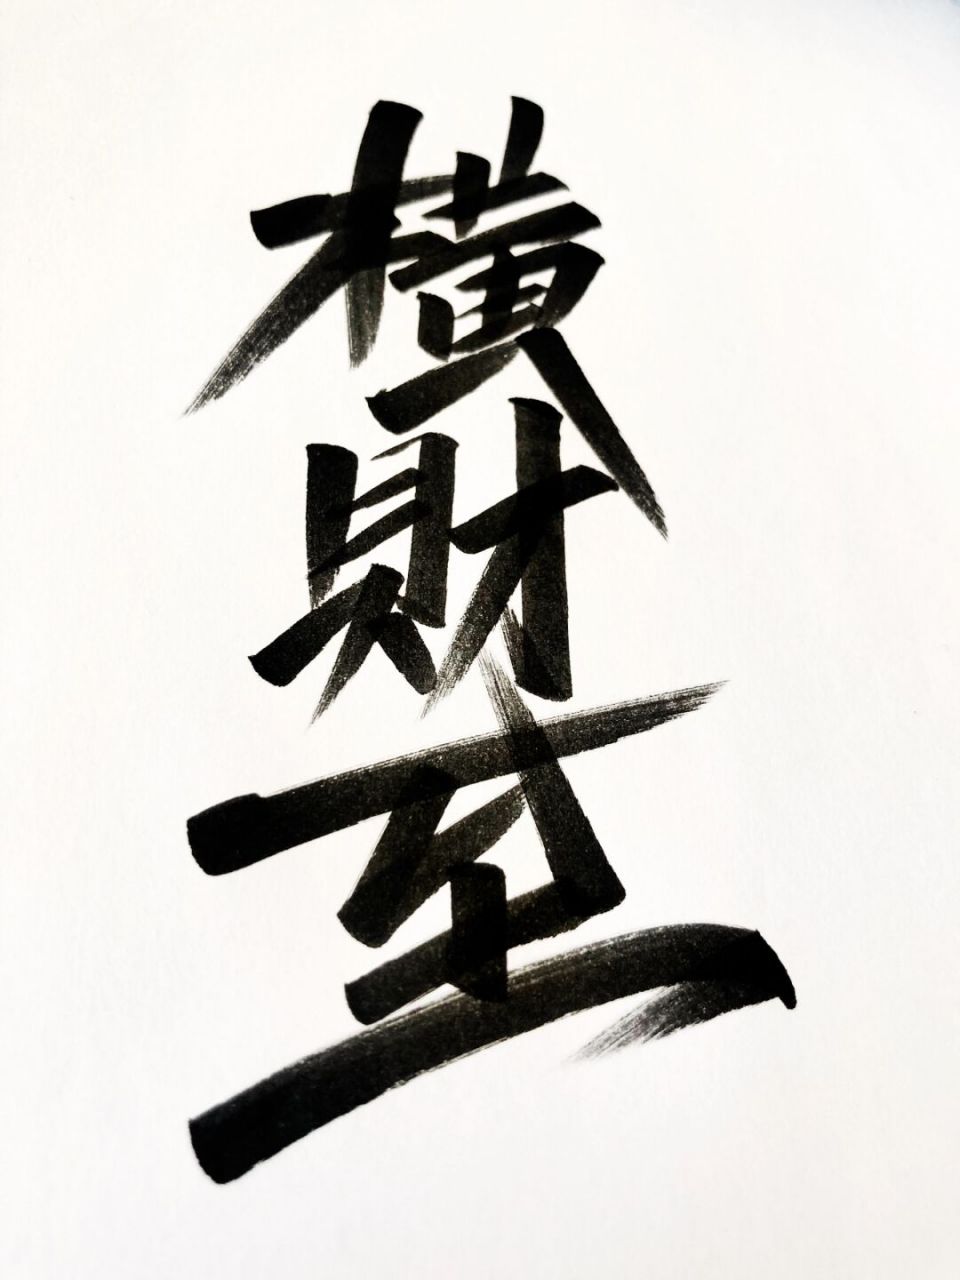 橫財至